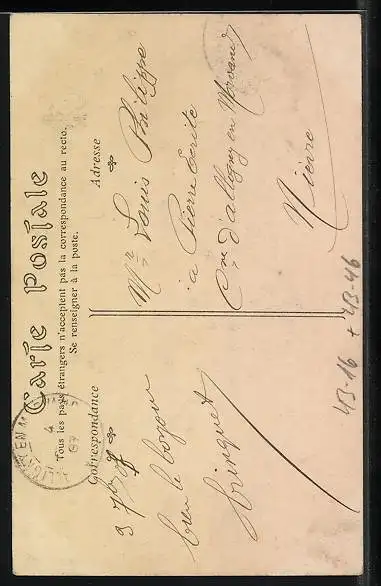 Carte Postale
Tous les pays étrangers n'acceptent pas la correspondance au recto.
Se renseigner à la poste.
Correspondance
3 7bre 07
bien le bonjour
Adresse
Mr Louis Philippe
à Pierre écrite
Cne d'alligny en Morvand
Nièvre
43-16 + 43-46